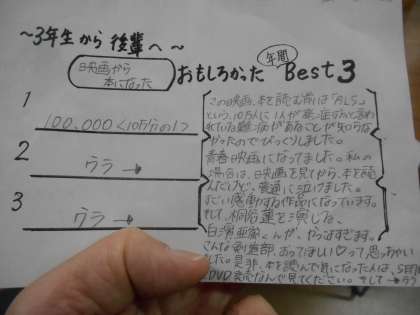 ～3年生から後輩へ～
映画から
本になった
おもしろかった
年間
Best 3
1
100,000<10万分の1>
2
ウラ→
3
ウラ→
この映画、本を読む前は「ALS」
という、10万人に1人が発症すると言わ
れている難病があることが知らな
かったのでびっくりしました。
青春映画になってました。私の
場合は、映画を見てから、本を読
んだけど、普通に泣けました。
すごい感動する作品になっています。
そして、桐谷蓮を演じる、
白濱亜嵐くんが、やっばすぎます。
こんな剣道部、おってほしい♡って思っちゃい
ました。是非、本を読んで気になった人は、
DVD
なんで見てください。そして→ウラ